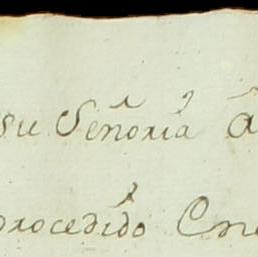 su Señoria a
procedido en